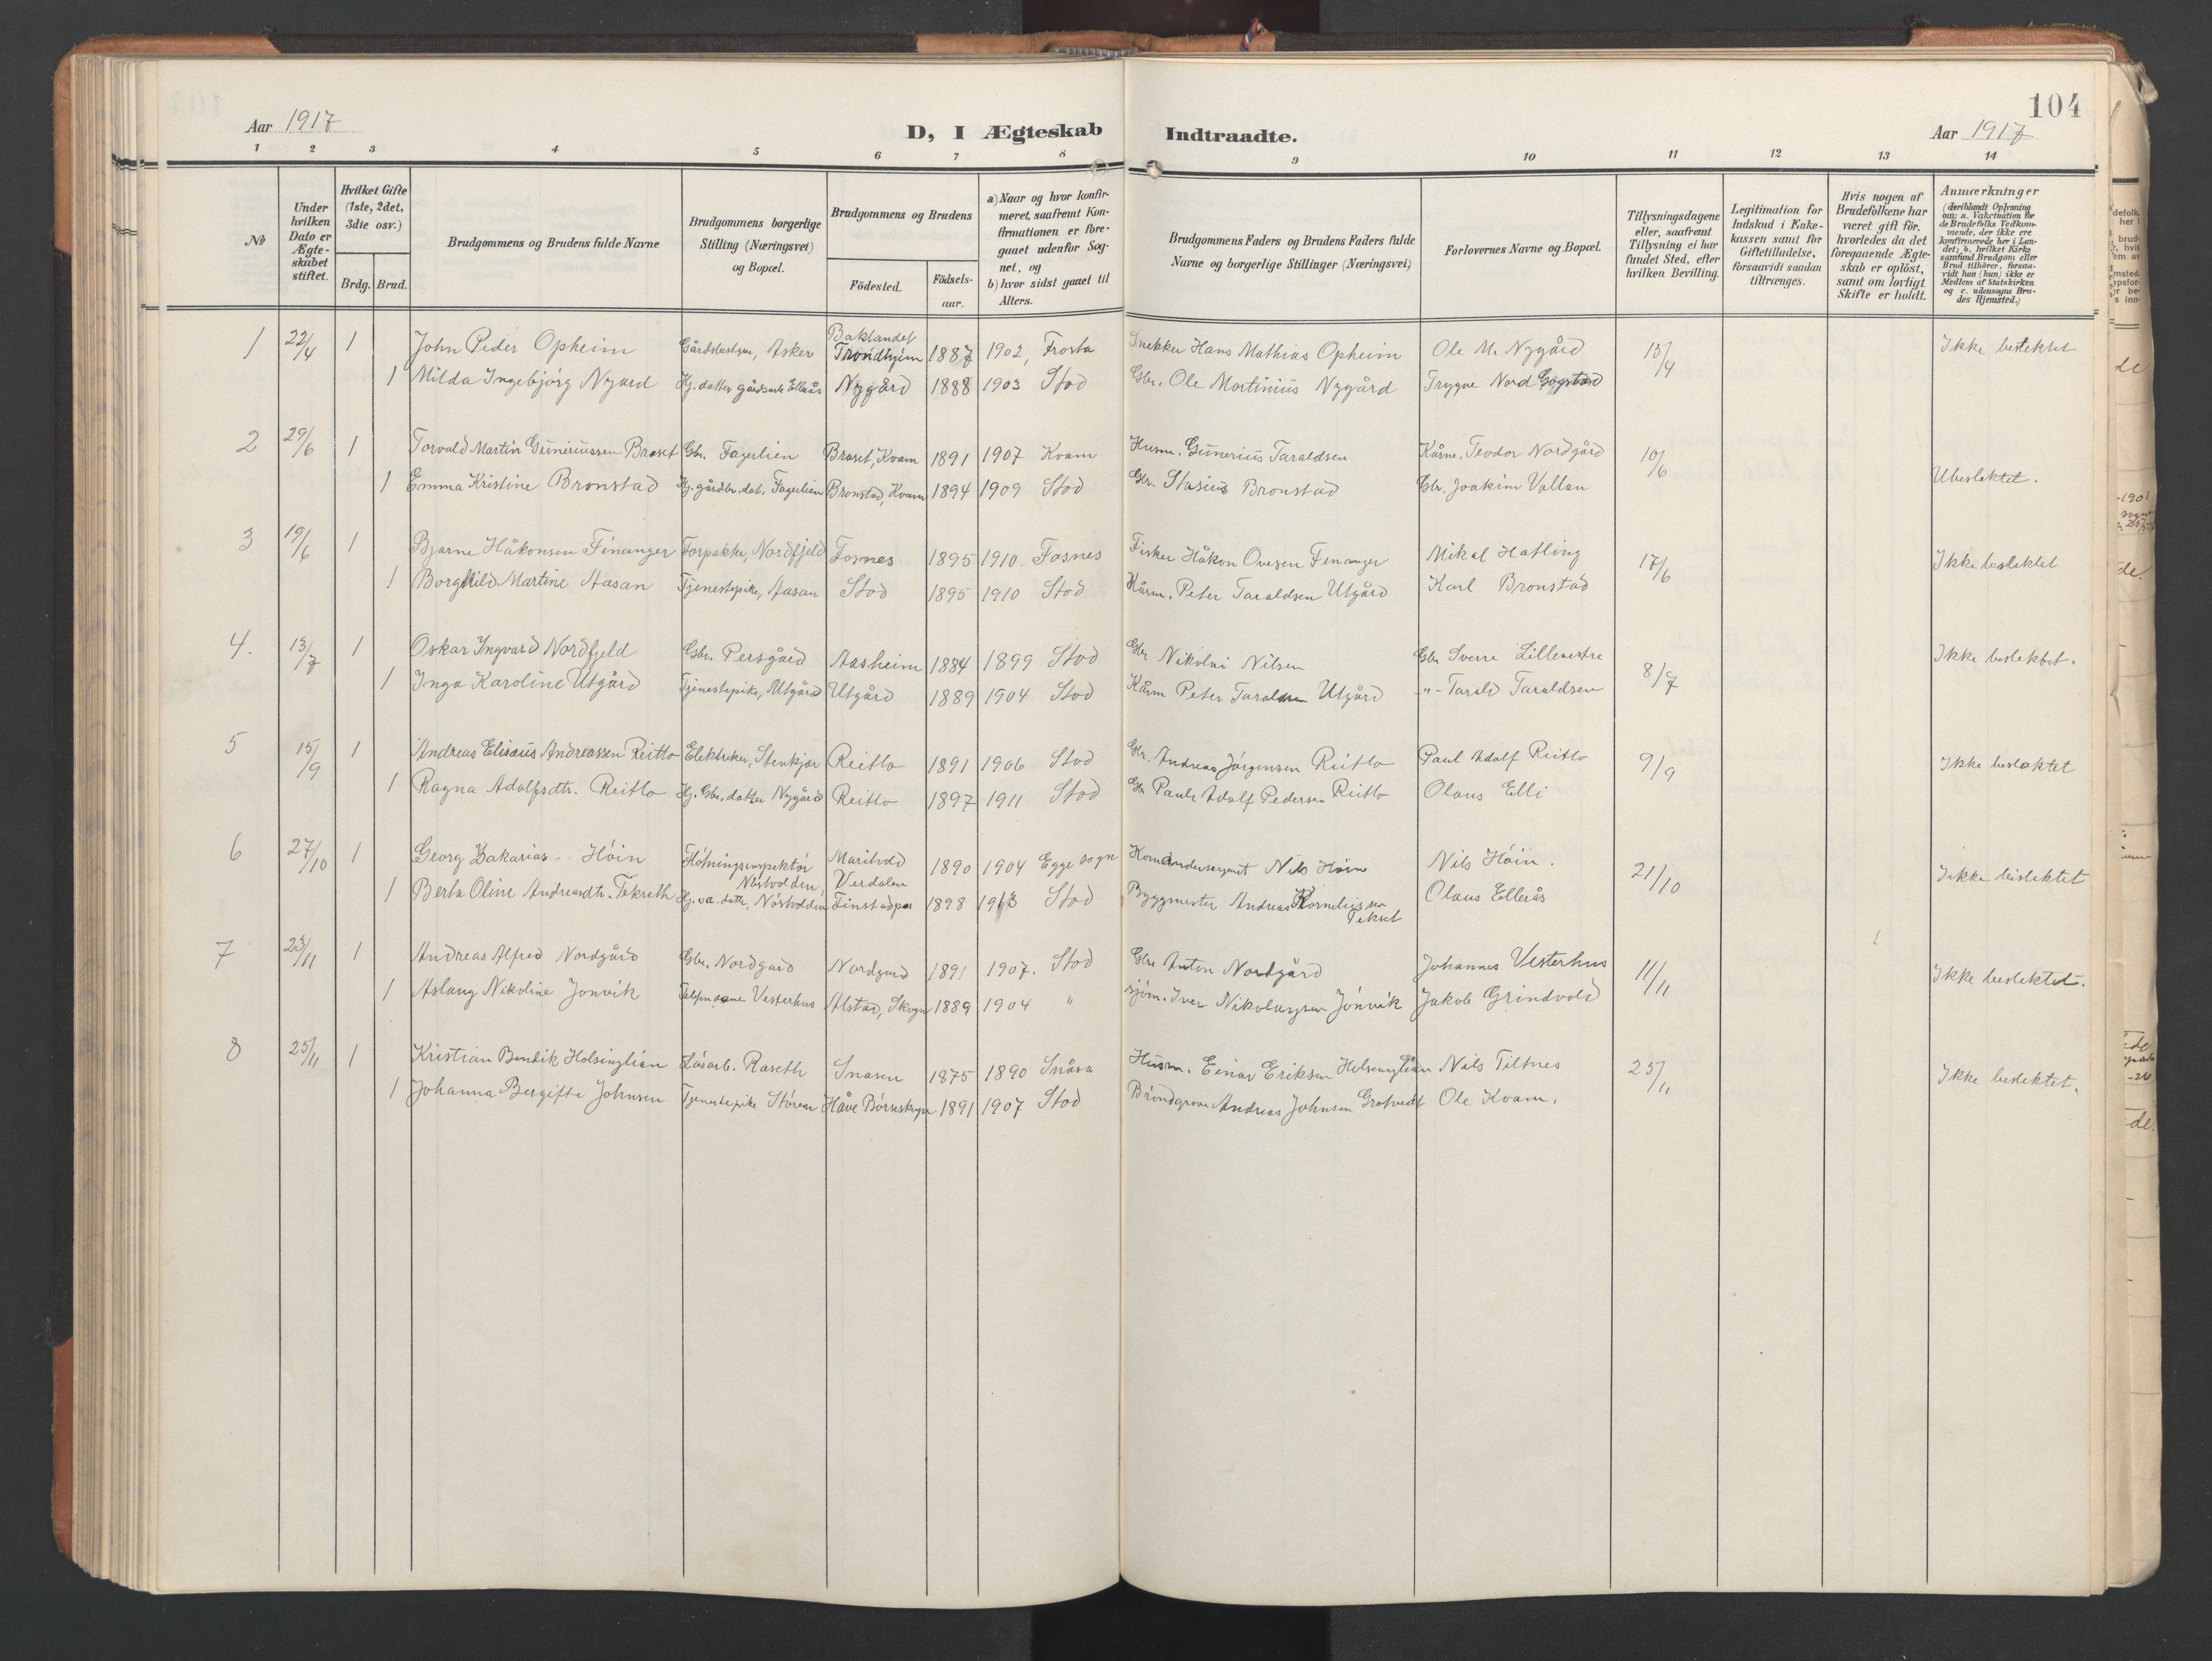 104
Aar 1917
D, I Ægteskab Indtraadte.
Aar 1917
1 2 3 4 5 6 7 8 9 10 11 12 13 14
No
Under hvilken Dato er Ægteskabet stiftet.
Hvilket Gifte (1ste, 2det, 3die osv.)
Brdg. Brud.
Brudgommens og Brudens fulde Navne
Brudgommens borgerlige Stilling (Næringsvei) og Bopæl.
Brudgommens og Brudens
Födested. Födsels-aar.
a) Naar og hvor konfir-
meret, saafremt Kon-
firmationen er fore-
gaaet udenfor Sog-
net, og
b) hvor sidst gaaet til
Alters.
Brudgommens Faders og Brudens Faders fulde
Navne og borgerlige Stillinger (Næringsvei)
Forlovernes Navne og Bopæl.
Tillysningsdagene
eller, saafremt
Tillysning ei har
fundet Sted, efter
hvilken Bevilling.
Legitimation for
Indskud i Enke-
kassen samt for
Giftetilladelse,
forsaavidt saadan
tiltrænges.
Hvis nogen af
Brudefolkene har
været gift før,
hvorledes da det
foregaaende Ægte-
skab er opløst,
samt om lovligt
Skifte er holdt.
Anmærkninger
(deriblandt Oplysning
om: a. Vakcination for
de Brudefolks Vedkom-
mende, der ikke ere
konfirmerede her i Lan-
det; b. hvilket Kirke-
samfund Brudgom eller
Brud tilhører, forsaa-
vidt han (hun) ikke er
Medlem af Statskirken
og c. udensogns Bru-
des Hjemsted.)
1 22/4 1 John Peder Opheim Asker Baklandet Trondhjem 1887 1902, Frosta Snekker Hans Mathias Opheim Ole M. Nygård 15/4 Ikke beslektet
1 Milda Ingebjörg Nygard Nygård 1888 1903 Stod Gbr. Ole Martinius Nygård Trygve Nord Gogstad
2 29/6 1 Torvald Martin Guneriussen Braset Gbr. Fagerlien Braset, Kvam 1891 1907 Kvam Husm. Gunerius Taraldsen Kårm. Teodor Nordgård 10/6 Ubeslektet.
1 Emma Kristine Bronstad Hj. gårdbr. dat. Fagerlien Bronstad, Kvam 1894 1909 Stod Gbr. Stasius Bronstad Gbr. Joakim Vollan
3 19/6 1 Bjarne Håkonsen Finanger Forpakter, Nordfjeld Fosnes 1895 1910. Fosnes Fisker Håkon Ovesen Finanger Mikal Hatling 17/6 Ikke beslektet
1 Borghild Martine Aasan Tjenestepike, Aasan Stod 1895 1910 Stod Kårm. Peter Taraldsen Utgård Karl Bronstad
4. 13/7 1 Oskar Ingvard Nordfjeld Gbr. Persgård Aasheim 1884 1899 Stod Gbr Nikolai Nilsen Gbr Sverre Lillevestre 8/7 Ikke beslektet.
1 Inga Karoline Utgård Tjenestepike, Utgård Utgård 1889 1904 Stod Kårm Peter Taraldsen Utgård -"- Tarald Taraldsen
5 15/9 1 Andreas Elisæus Andreassen Reitlo Elektriker, Stenkjær Reitlo 1891 1906 Stod Gbr. Andreas Jörgensen Reitlo Paul Adolf Reitlo 9/9 Ikke beslektet
1 Ragna Adolfsdtr. Reitlo Hj. Gbr. datter Nygård Reitlo 1897 1911 Stod Gbr Paul Adolf Pedersen Reitlo Olaus Elli
6 27/10 1 Georg Zakarias Höin Flötningsinspektör Nöstvolden, Maritvold Verdalen 1890 1904 Egge sogn Komandersergeant Nils Höin Nils Höin. 21/10 Ikke beslektet
1 Berta Oline Andreasdtr. Tekseth Hj.v. datter, Nöstvolden Finstadpa 1898 1913 Stod Byggmester Andreas Korneliussen Tekset Olaus Ellerås
7 23/11 1 Andreas Alfred Nordgård Gbr. Nordgard Nordgard 1891 1907. Stod Gbr. Anton Nordgård Johannes Vesterhus 11/11 Ikke beslektet.
1 Aslaug Nikoline Jonvik Telefondame Vesterhus Alstad, Skogn 1889 1904 " Sjöm. Iver Nikolaysen Jönvik Jakob Grindvold
8 25/11 1 Kristian Bendik Holsinglian Lösarb. Raseth Snasen 1875 1890 Snåsa Husm. Einar Eriksen Holsinglian Nils Tiltnes 25/11 Ikke beslektet.
1 Johanna Bergitte Johnsen Tjenestepike Stören Håve Börseskogn 1891 1907 Stod Bröndgraver Andreas Johnsen Ole Kvam.